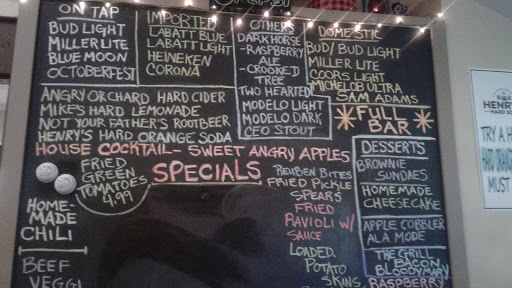 ON TAP
BUD LIGHT
MILLER LITE
BLUE MOON
OCTOBERFEST
IMPORTED
LABATT BLUE
LABATT LIGHT
HEINEKEN
CORONA
OTHERS
DARKHORSE
-RASPBERRY
ALE
-CROOKED
TREE
TWO HEARTED
MODELO LIGHT
MODELO DARK
CEO STOUT
DOMESTIC
BUD/BUD LIGHT
MILLER LITE
COORS LIGHT
MICHELOB ULTRA
SAM ADAMS
*FULL*
BAR
ANGRY ORCHARD HARD CIDER
MIKE'S HARD LEMONADE
NOT YOUR FATHER'S ROOTBEER
HENRY'S HARD ORANGE SODA
HOUSE COCKTAIL- SWEET ANGRY APPLES
FRIED
GREEN
TOMATOES
4.99
SPECIALS
HOME-
MADE
CHILI
BEEF
VEGGI
REUBEN BITES
FRIED PICKLE
SPEARS
FRIED
RAVIOLI W/
SAUCE
LOADED
POTATO
SKINS
DESSERTS
BROWNIE
SUNDAES
HOMEMADE
CHEESECAKE
APPLE COBBLER
ALA MODE
THE GRILL
BACON
BLOODYMARY
RASPBERRY
HENRY
HARD SO
TRY A H
HARD ORANGE
MUST